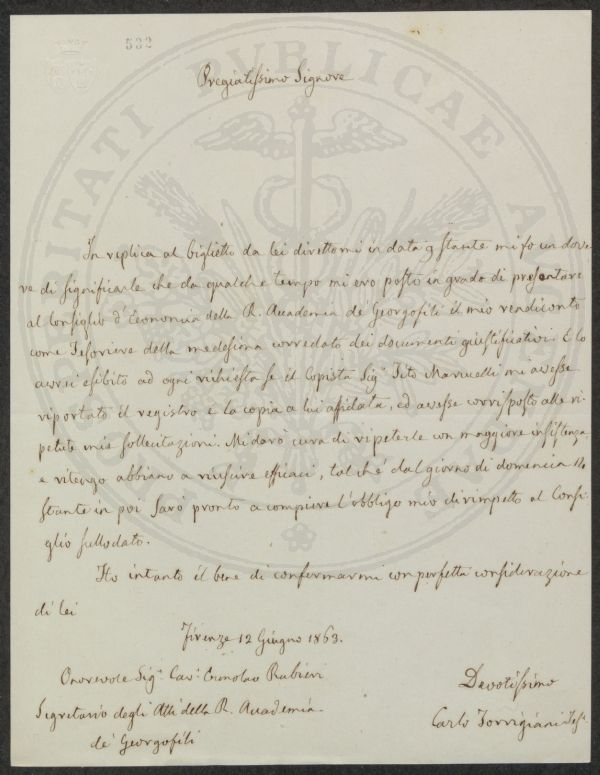 532
Pregiatissimo Signore
In replica al biglietto da lei direttomi in data 9 stante mi fo un dove
re di significarle che da qualche tempo mi ero posto in grado di presentare
al Consiglio d'Economia della R. Accademia de' Georgofili il mio rendiconto
come Tesoriere della medesima corredato dei documenti giustificativi. E lo
avrei esibito ad ogni richiesta se il Copista Sigr Tito Marucelli mi avesse
riportato il registro e la copia a lui affidata, ed avesse corrisposto alle ri
petute mie sollecitazioni. Mi darò cura di ripeterle con maggiore insistenza
e ritengo abbiano a riuscire efficaci, tal chè dal giorno di domenica 14
stante in poi sarò pronto a compiere l'obbligo mio dirimpetto al Consi-
glio sullodato.
Ho intanto il bene di confermarmi con perfetta considerazione
di lei
Firenze 12 Giugno 1863.
Onorevole Sigr Cavr Ermolao Rubieri
Segretario degli Atti della R. Accademia
de' Georgofili
Devotissimo
Carlo Torrigiani
PROSPERITATI PUBLICAE AUGENDAE